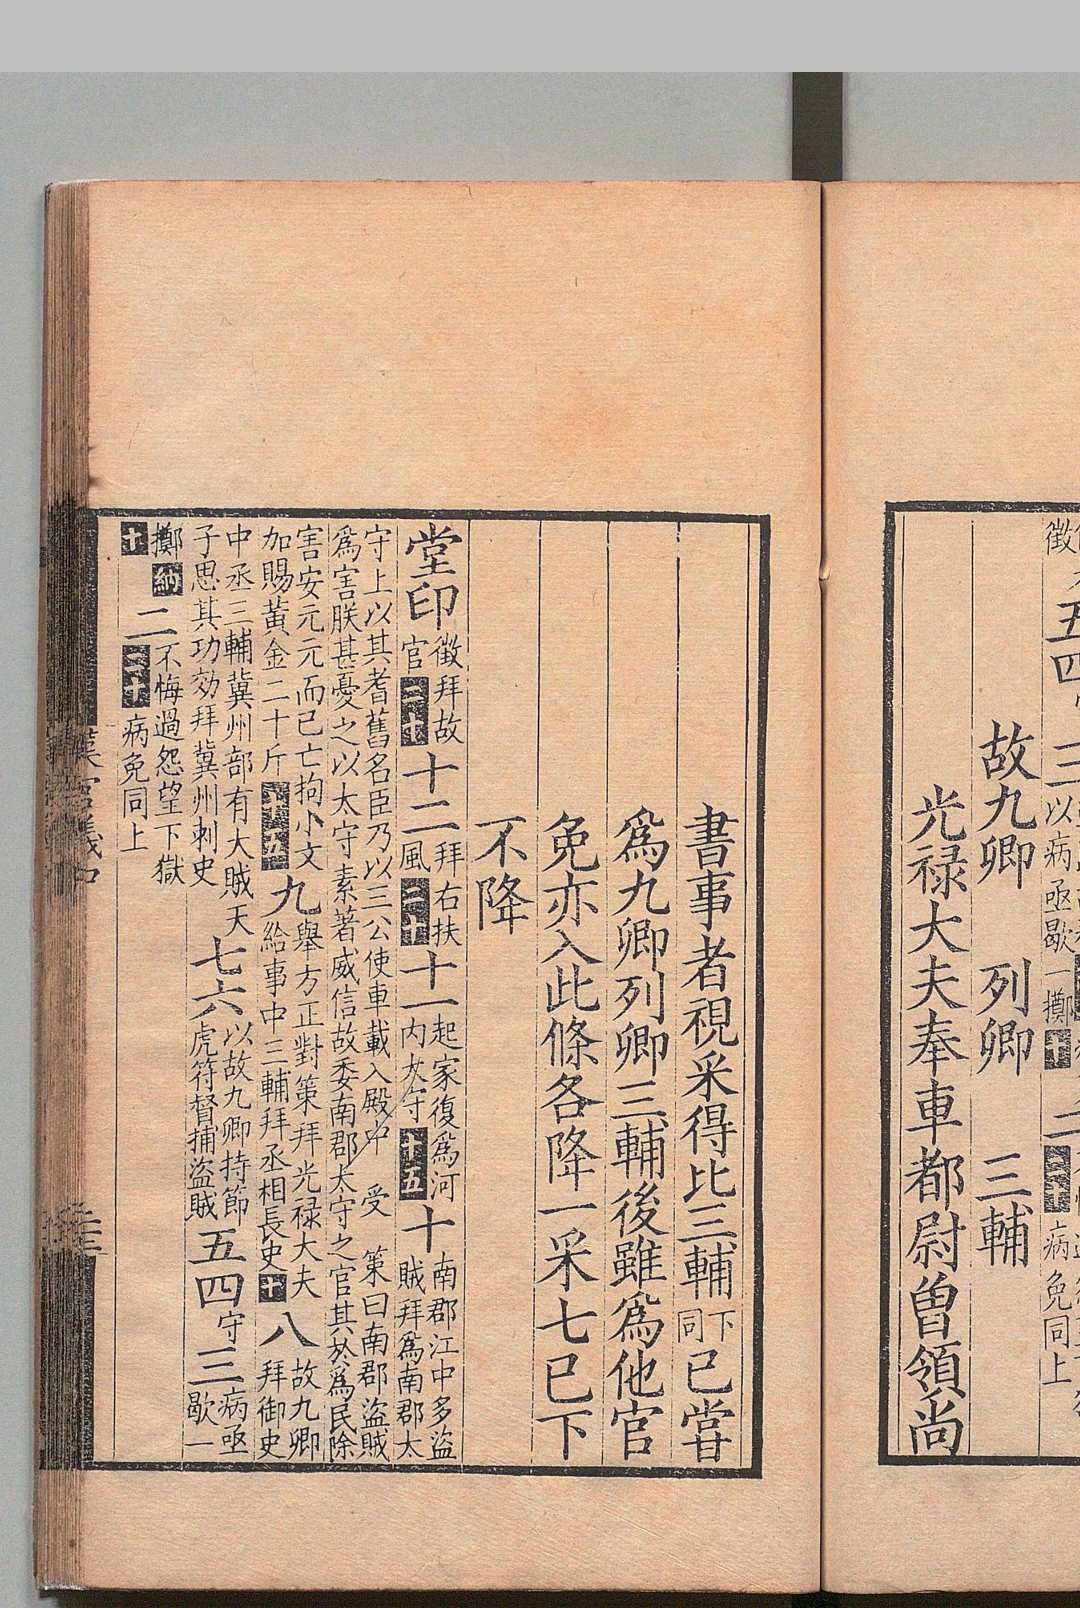 徵
五四
三
以病亟歇一擲十
二
二十
病免同上
故九卿　列卿　三輔
光禄大夫奉車都尉曽領尚
書事者視采得比三輔下同已甞
爲九卿列卿三輔後雖爲他官
免亦入此條各降一采七已下
不降
堂印徵拜故官三十十二拜右扶風二十十一起家復爲河内太守十五十南郡江中多盗賊拜爲南郡太
守上以其耆舊名臣乃以三公使車載入殿中　受　策曰南郡盗賊
爲害朕甚憂之以太守素著威信故委南郡太守之官其於爲民除
害安元元而已亡拘小文加賜黄金二十斤九舉方正對策拜光禄大夫給事中三輔拜丞相長史十八故九卿拜御史
中丞三輔冀州部有大賊天子思其功効拜冀州刺史七六以故九卿持節虎符督捕盗賊五四守三病亟歇一
擲納十二不悔過怨望下獄二十病免同上
漢官儀中